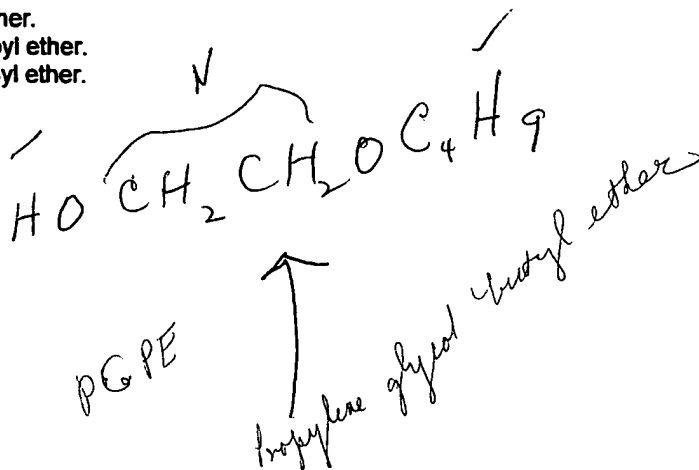 her.
yl ether.
yl ether.
N
HO CH2 CH2 O C4 H9
PGPE
Propylene glycol butyl ether